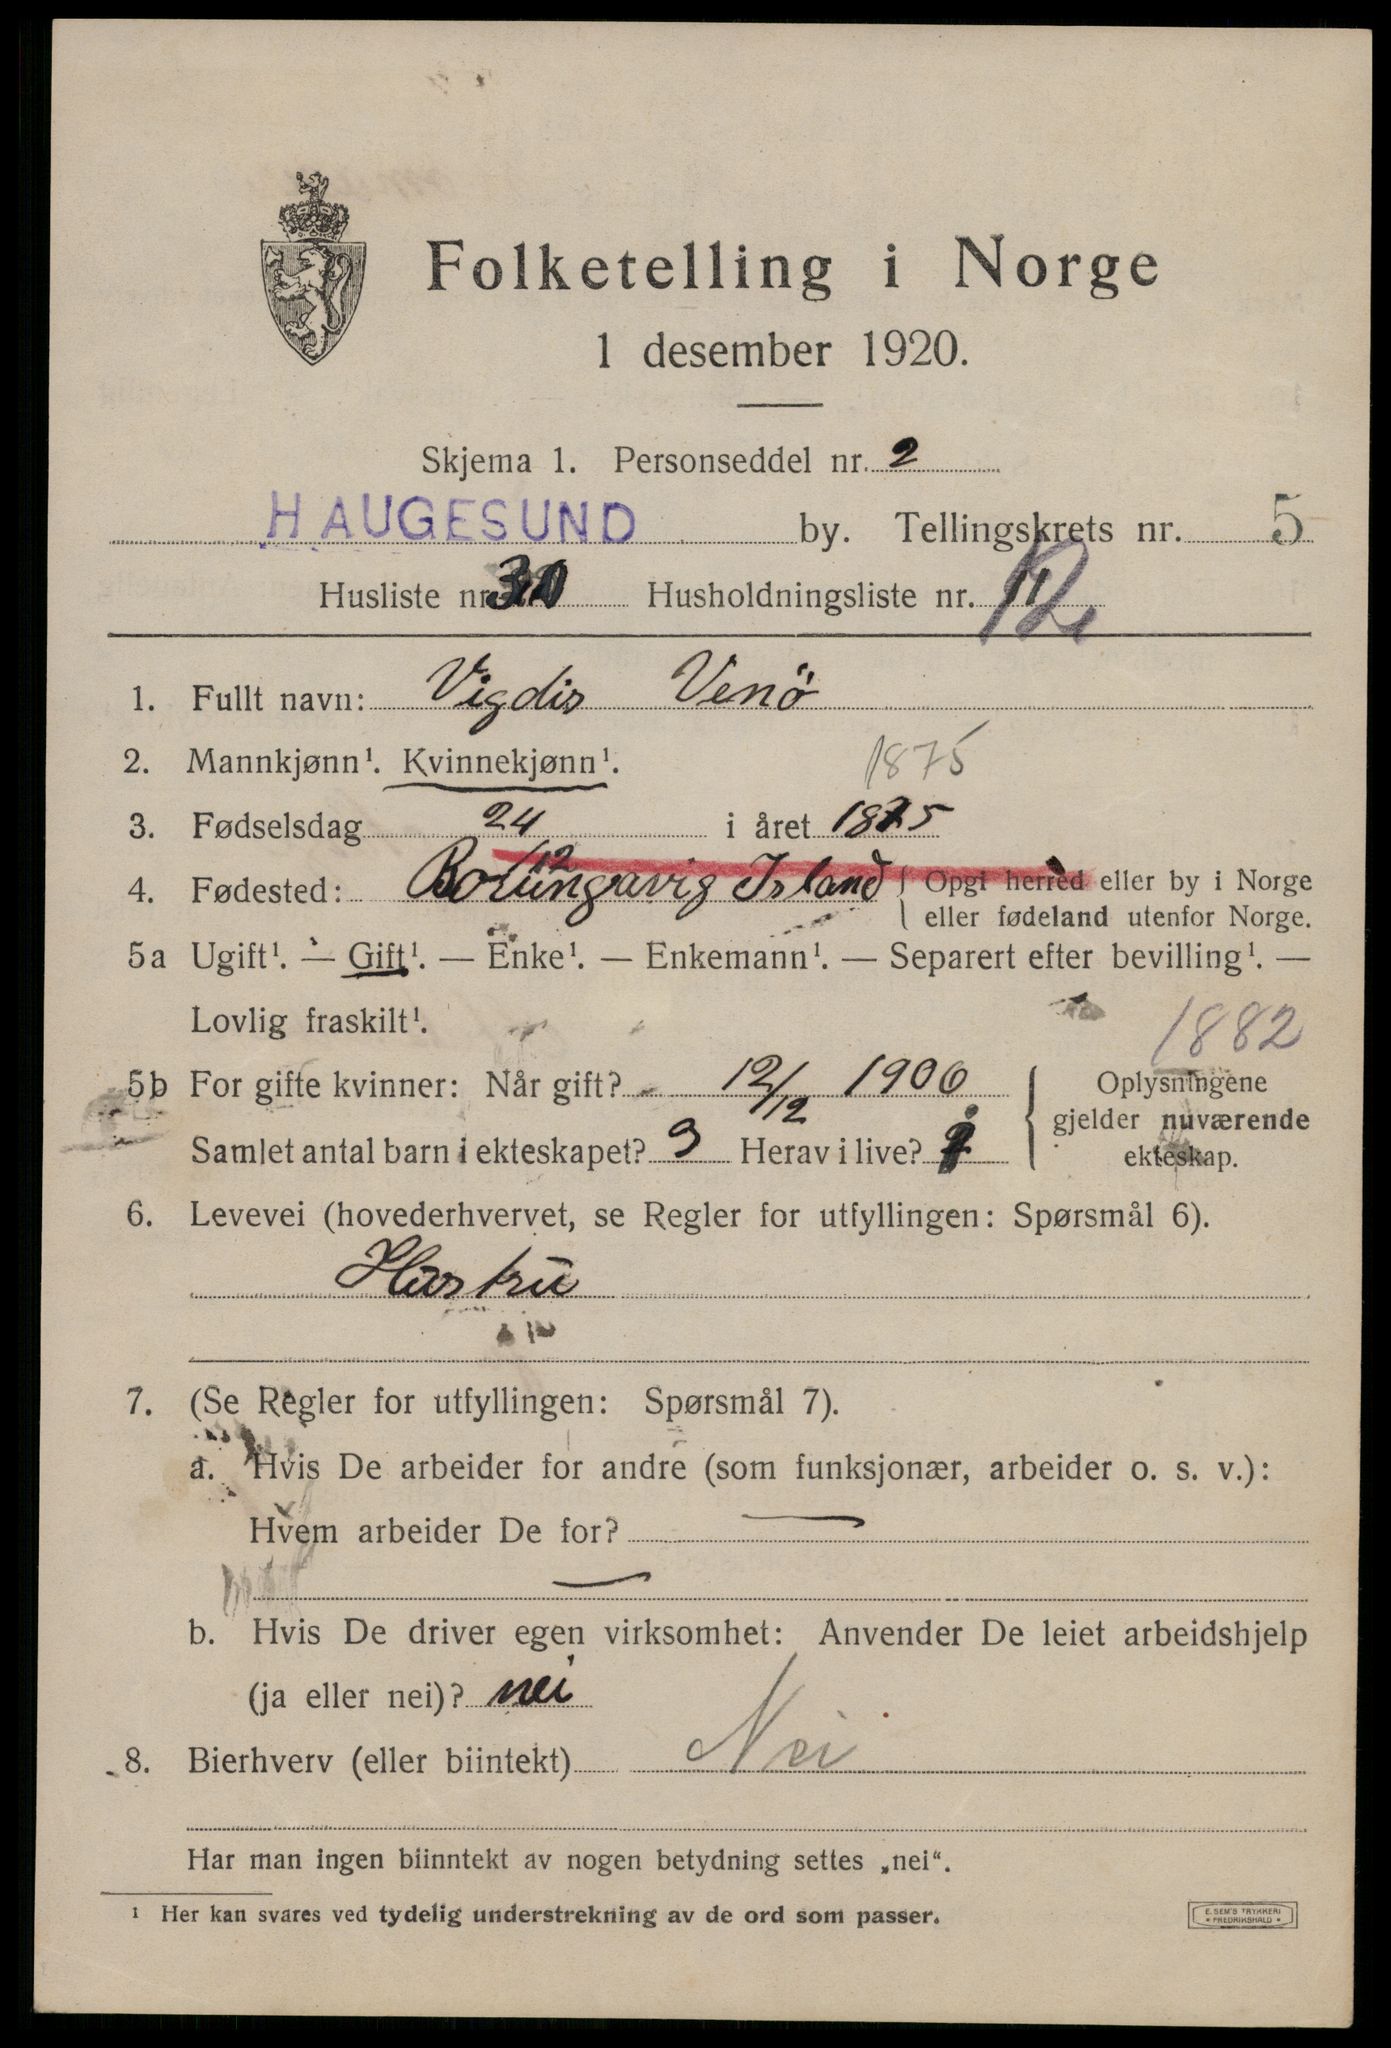 Folketelling i Norge
1 desember 1920.
Skjema 1. Personseddel nr. 2
HAUGESUND by. Tellingskrets nr. 5
Husliste nr. Husholdningsliste nr. 11 12
1. Fullt navn: Vigdis Venö
2. Mannkjønn¹. Kvinnekjønn¹. 1875
3. Fødselsdag 24/12 i året 1875
4. Fødested: Bolungavig Island { Opgi herred eller by i Norge
eller fødeland utenfor Norge.
5a Ugift¹. — Gift¹. — Enke¹. — Enkemann¹. — Separert efter bevilling¹. —
Lovlig fraskilt¹.
1882
5b For gifte kvinner: Når gift? 12/12 1906 { Oplysningene
gjelder nuværende
Samlet antal barn i ekteskapet? 3 Herav i live? } ekteskap.
6. Levevei (hovederhvervet, se Regler for utfyllingen: Spørsmål 6).
Hustru
7. (Se Regler for utfyllingen: Spørsmål 7).
a. Hvis De arbeider for andre (som funksjonær, arbeider o. s. v.):
Hvem arbeider De for? —
—
b. Hvis De driver egen virksomhet: Anvender De leiet arbeidshjelp
(ja eller nei)? nei
8. Bierhverv (eller biintekt) Nei
Har man ingen biinntekt av nogen betydning settes „nei“.
¹ Her kan svares ved tydelig understrekning av de ord som passer.
E. SEM'S TRYKKERI
* FREDRIKSHALD *